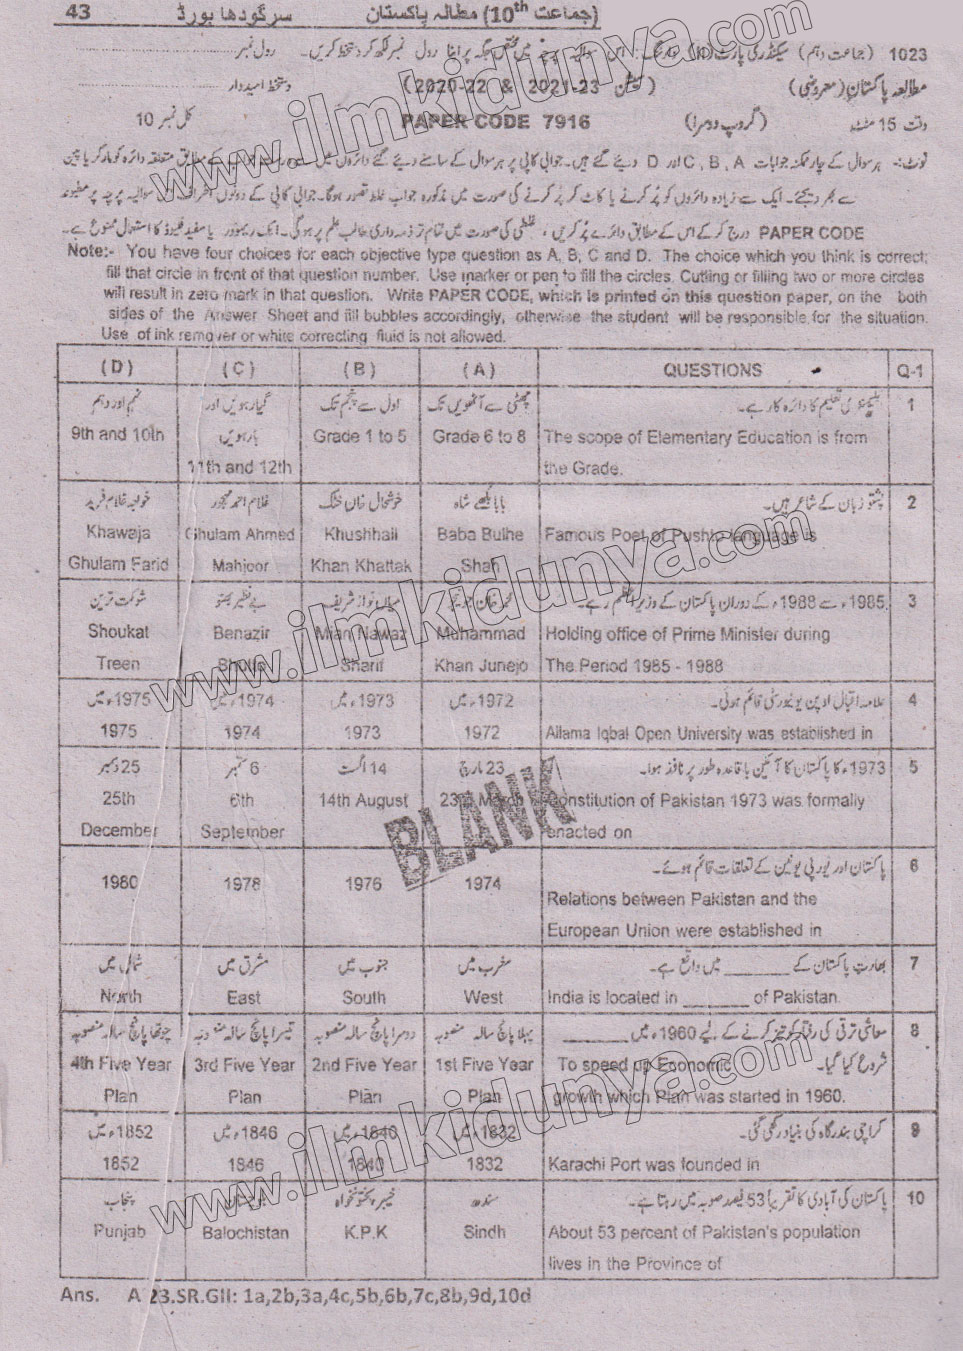 43 سرگودھا بورڈ مطالہ پاکستان (جماعت 10th)
1023 (جماعت دہم) سیکنڈری پارٹ (II) وارننگ: اس سوالیہ پرچہ میں مختص جگہ پر اپنا رول نمبر لکھ کر دستخط کریں۔ رول نمبر
مطالعہ پاکستان (معروضی) (سیشن 2020-22 & 2021-23) دستخط امیدوار
وقت 15 منٹ (گروپ دوسرا) PAPER CODE 7916 کل نمبر 10
نوٹ:- ہر سوال کے چار ممکنہ جوابات A ،B ،C اور D دیئے گئے ہیں۔ جوابی کاپی پر ہر سوال کے سامنے دیئے گئے دائروں میں سے درست جواب کے مطابق متعلقہ دائرہ کو مارکر یا پین
سے بھر دیجئے۔ ایک سے زیادہ دائروں کو پُر کرنے یا کاٹ کر پُر کرنے کی صورت میں مذکورہ جواب غلط تصور ہوگا۔ جوابی کاپی کے دونوں اطراف سوالیہ پرچہ پر مطبوعہ
PAPER CODE درج کر کے اس کے مطابق دائرے پُر کریں، غلطی کی صورت میں تمام تر ذمہ داری طالب علم پر ہوگی۔ انک ریموور یا سفید فلیوڈ کا استعمال ممنوع ہے۔
Note:- You have four choices for each objective type question as A, B, C and D. The choice which you think is correct;
fill that circle in front of that question number. Use marker or pen to fill the circles. Cutting or filling two or more circles
will result in zero mark in that question. Write PAPER CODE, which is printed on this question paper, on the both
sides of the Answer Sheet and fill bubbles accordingly, otherwise the student will be responsible for the situation.
Use of ink remover or white correcting fluid is not allowed.
(D) (C) (B) (A) QUESTIONS Q-1
نہم اور دہم گیارہویں اور اول سے پنجم تک چھٹی سے آٹھویں تک ایلیمنٹری تعلیم کا دائرہ کار ہے۔ 1
9th and 10th بارہویں Grade 1 to 5 Grade 6 to 8 The scope of Elementary Education is from
11th and 12th the Grade.
خواجہ غلام فرید غلام احمد مہجور خوشحال خان خٹک بابا بلھے شاہ پشتو زبان کے شاعر ہیں۔ 2
Khawaja Ghulam Ahmed Khushhall Baba Bulhe Famous Poet of Pushto language is
Ghulam Farid Mahjoor Khan Khattak Shah
شوکت ترین بے نظیر بھٹو میاں نواز شریف محمد خان جونیجو 1985ء سے 1988ء کے دوران پاکستان کے وزیر اعظم رہے۔ 3
Shoukat Benazir Mian Nawaz Muhammad Holding office of Prime Minister during
Treen Bhutto Sharif Khan Junejo The Period 1985 - 1988
1975ء میں 1974ء میں 1973ء میں 1972ء میں علامہ اقبال اوپن یونیورسٹی قائم ہوئی۔ 4
1975 1974 1973 1972 Allama Iqbal Open University was established in
25 دسمبر 6 ستمبر 14 اگست 23 مارچ 1973ء کا پاکستان کا آئین باقاعدہ طور پر نافذ ہوا۔ 5
25th 6th 14th August 23rd March Constitution of Pakistan 1973 was formally
December September enacted on
BLANK
پاکستان اور یورپی یونین کے تعلقات قائم ہوئے۔ 6
1980 1978 1976 1974 Relations between Pakistan and the
European Union were established in
شمال میں مشرق میں جنوب میں مغرب میں بھارت پاکستان کے ______ میں واقع ہے۔ 7
North East South West India is located in ______ of Pakistan.
چوتھا پانچ سالہ منصوبہ تیسرا پانچ سالہ منصوبہ دوسرا پانچ سالہ منصوبہ پہلا پانچ سالہ منصوبہ معاشی ترقی کی رفتار کو تیز کرنے کے لیے 1960ء میں ______ 8
شروع کیا گیا۔
4th Five Year 3rd Five Year 2nd Five Year 1st Five Year To speed up Economic
Plan Plan Plan Plan growth which Plan was started in 1960.
1852ء میں 1846ء میں 1840ء میں 1832ء میں کراچی بندرگاہ کی بنیاد رکھی گئی۔ 9
1852 1846 1840 1832 Karachi Port was founded in
پنجاب بلوچستان خیبر پختونخواہ سندھ پاکستان کی آبادی کا تقریباً 53 فیصد صوبہ میں رہتا ہے۔ 10
Punjab Balochistan K.P.K Sindh About 53 percent of Pakistan's population
lives in the Province of
Ans. A 23.SR.GII: 1a,2b,3a,4c,5b,6b,7c,8b,9d,10d
www.ilmkidunya.com
www.ilmkidunya.com
www.ilmkidunya.com